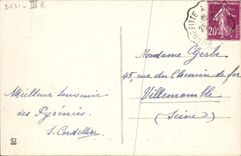 2631 - III R
20c
Meilleur souvenir
des Pyrénées
S. Cordellier
Madame Gerbe
45, rue du Chemin de fer
Villemomble
(Seine)